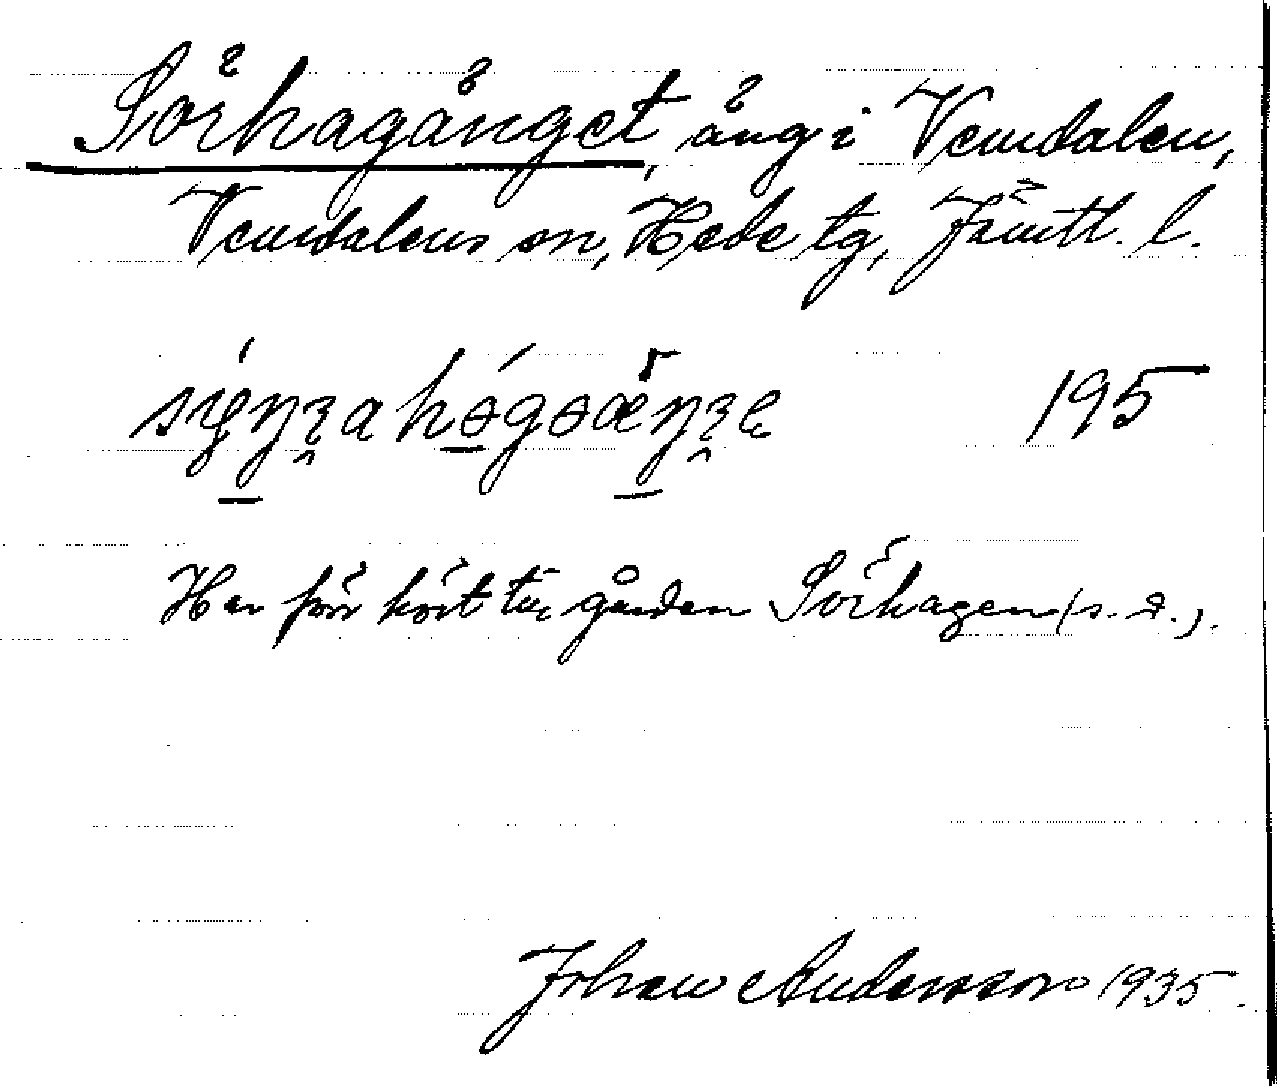 Sörhagänget, äng i Vemdalen,
Vemdalens sn, Hede tg, Jämtl. l.
195
Har förr hört till gården Sörhagen (s. d.).
Johan Andersson 1935.